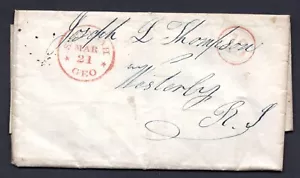 Joseph L Thompson
MAR
21
GEO
Westerly
R. I